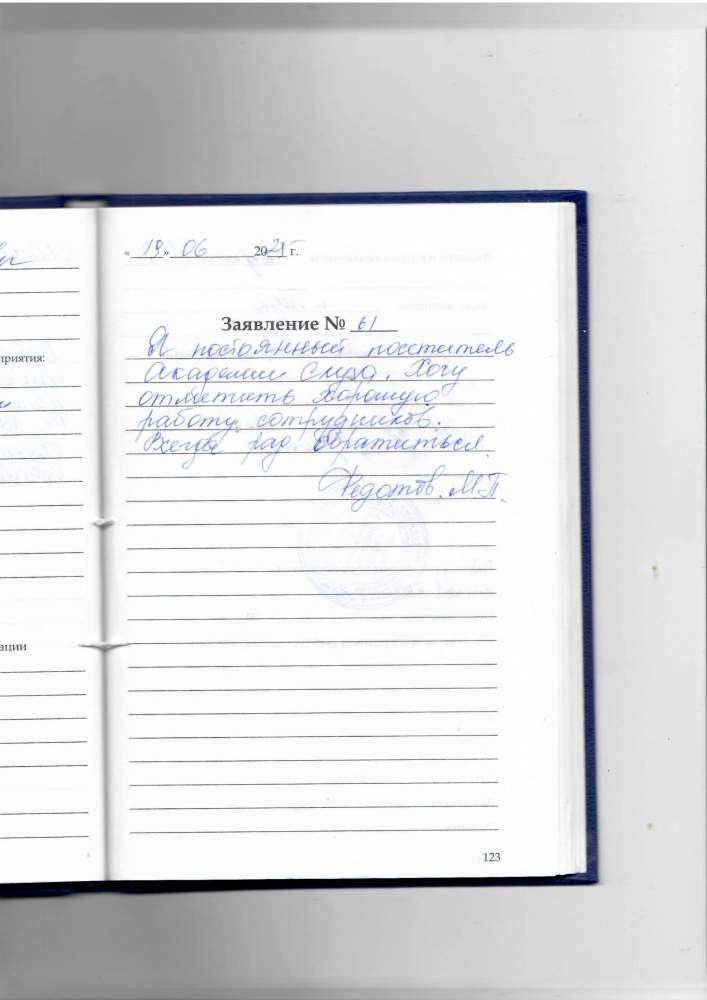 « 19 » 06 2021 г.
Заявление № 61
Я постоянный посетитель
Академии Слуха. Хочу
отметить хорошую
работу сотрудников.
Всегда рад обратиться.
Федотов. М.П.
приятия:
ации
123